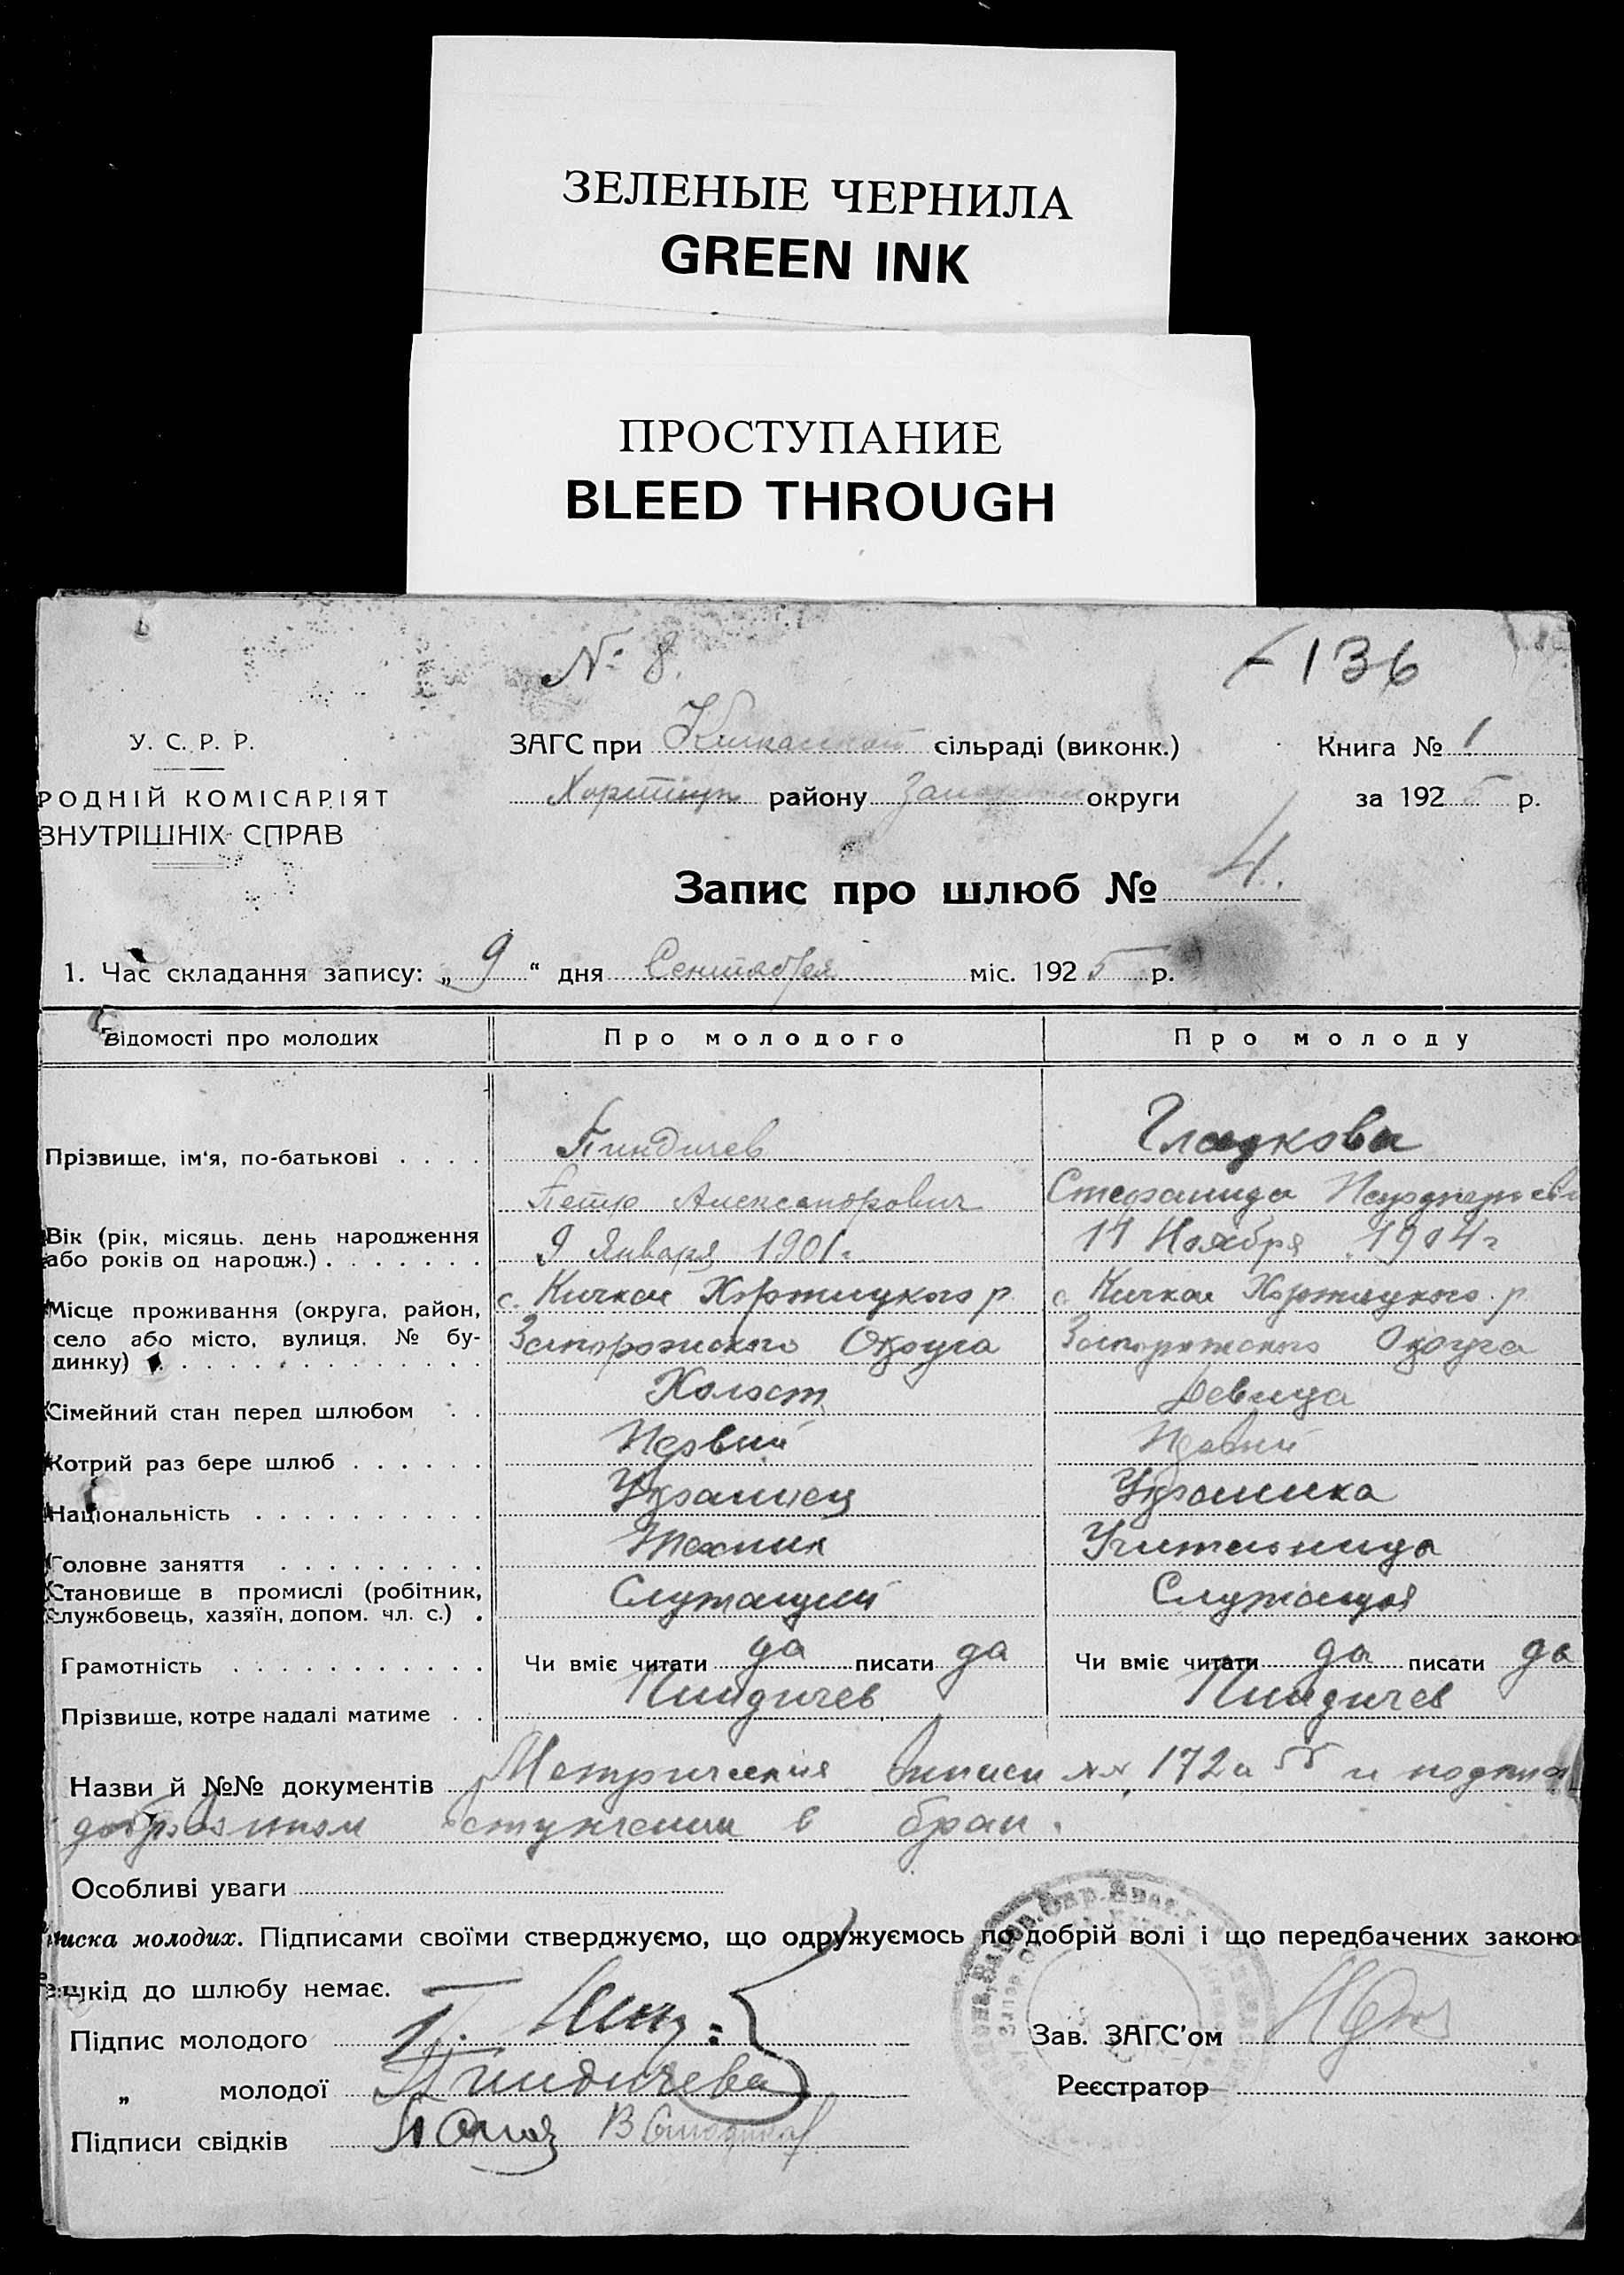 ЗЕЛЕНЫЕ ЧЕРНИЛА
GREEN INK
ПРОСТУПАНИЕ
BLEED THROUGH
№ 8.
136
У. С. Р. Р.
ЗАГС при сільраді (виконк.)
Книга № 1
РОДНІЙ КОМІСАРІЯТ
району округи
за 1925 р.
ВНУТРІШНІХ СПРАВ
Запис про шлюб № 4.
1. Час складання запису: „ 9 “ дня Сентября міс. 1925 р.
Відомості про молодих Про молодого Про молоду
Прізвище, ім‘я, по-батькові . . . . Пиндичев Гладкова
Петр Александрович Стефанида
Вік (рік, місяць. день народження
або років од народж.) . . . . . . . 9 Января 1901 г. 11 Ноября 1904 г
Місце проживання (округа, район, с. Кичкас Хортицкого р с. Кичкас Хортицкого р
село або місто, вулиця. № бу- Запорожского Округа Запорожского Округа
динку)
Сімейний стан перед шлюбом . . Холост Девица
Котрий раз бере шлюб . . . . . . Первий Первий
Національність . . . . . . . . . . Украинец Украинка
Головне заняття . . . . . . . . . Техник Учительница
Становище в промислі (робітник,
службовець, хазяїн, допом. чл. с.) . Служащий Служащая
Грамотність . . . . . . . . . . . Чи вміє читати да писати да Чи вміє читати да писати да
Прізвище, котре надалі матиме . . Пиндичев Пиндичев
Назви й №№ документів Метрические 172 и и
вступлении в брак.
Особливі уваги
писка молодих. Підписами своїми стверджуємо, що одружуємось по добрій волі і що передбачених законо
ешкід до шлюбу немає.
Підпис молодого
Зав. ЗАГС’ом
„ молодої Пиндичева
Реєстратор
Підписи свідків